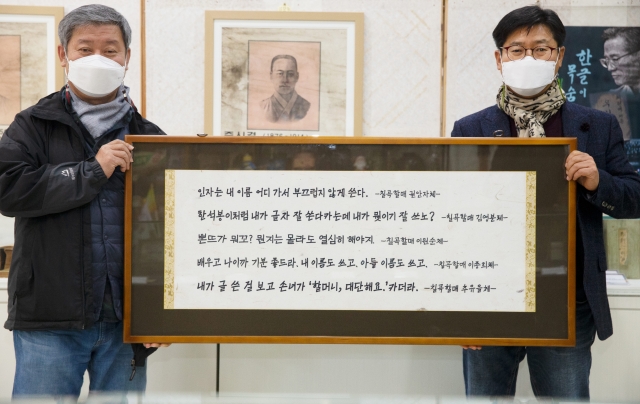 주시경
한글이
목숨
인자는 내 이름 어디 가서 부끄럽지 않게 쓴다. -칠곡할매 권안자체-
한석봉이처럼 내가 글자 잘 쓴다카는데 내가 뭐이가 잘 쓰노? -칠곡할매 김영분체-
뽄뜨가 뭐꼬? 뭔지는 몰라도 열심히 해야지. -칠곡할매 이원순체-
배우고 나이까 기분 좋드라. 내 이름도 쓰고, 아들 이름도 쓰고. -칠곡할매 이종희체-
내가 글 쓴 걸 보고 손녀가 '할머니, 대단해요.'카더라. -칠곡할매 추유을체-